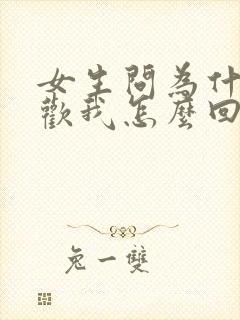 女生問為什
歡我怎麼回
兔一雙